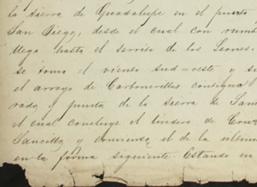 la Sierra de Guadalupe en el puerto
San Diego, desde el cual con rumbo
llega hasta el cerrito de los Leones.
se toma el viento sud-oeste y
el arroyo de Carboneritos
y punta de la Sierra de
el cual concluye el lindero de
y comienza el de la
en la forma siguiente. Estando en